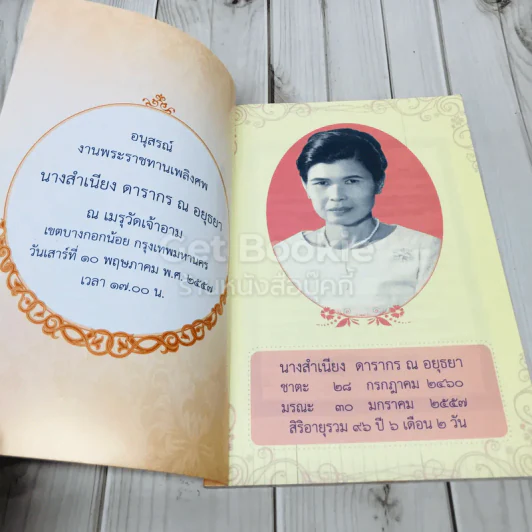 อนุสรณ์
งานพระราชทานเพลิงศพ
นางสำเนียง ดารากร ณ อยุธยา
ณ เมรุวัดเจ้าอาม
เขตบางกอกน้อย กรุงเทพมหานคร
วันเสาร์ที่ ๑๐ พฤษภาคม พ.ศ. ๒๕๕๗
เวลา ๑๗.๐๐ น.
Get Bookie
ร้านหนังสือบุ๊คกี้
นางสำเนียง ดารากร ณ อยุธยา
ชาตะ ๒๘ กรกฎาคม ๒๔๖๐
มรณะ ๓๐ มกราคม ๒๕๕๗
สิริอายุรวม ๙๖ ปี ๖ เดือน ๒ วัน